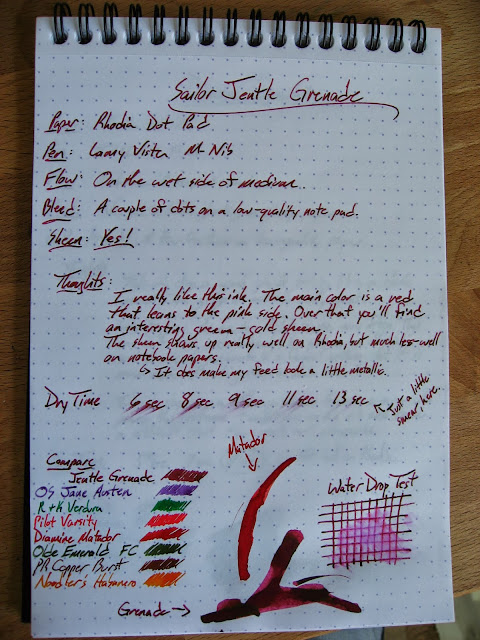 Sailor Jentle Grenade
Paper: Rhodia Dot Pad
Pen: Lamy Vista M Nib
Flow: On the wet side of medium.
Bleed: A couple of dots on a low-quality note pad.
Sheen: Yes!
Thoughts:
I really like this ink. The main color is a red
that leans to the pink side. Over that you'll find
an interesting green-gold sheen.
The sheen shows up really well on Rhodia, but much less-well
on notebook papers.
↳ It does make my feed look a little metallic.
Dry Time 6 sec 8 sec 9 sec 11 sec 13 sec
Just a little
smear here.
Matador
Compare
Jentle Grenade
O's Jane Austen
R+K Verdura
Pilot Varsity
Diamine Matador
Olde Emerald FC
PR Copper Burst
Noodler's Habanero
Water Drop Test
Grenade →